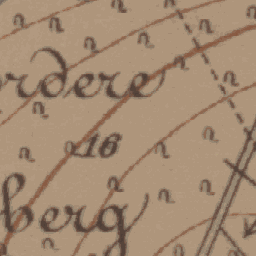 rdere
16
berg